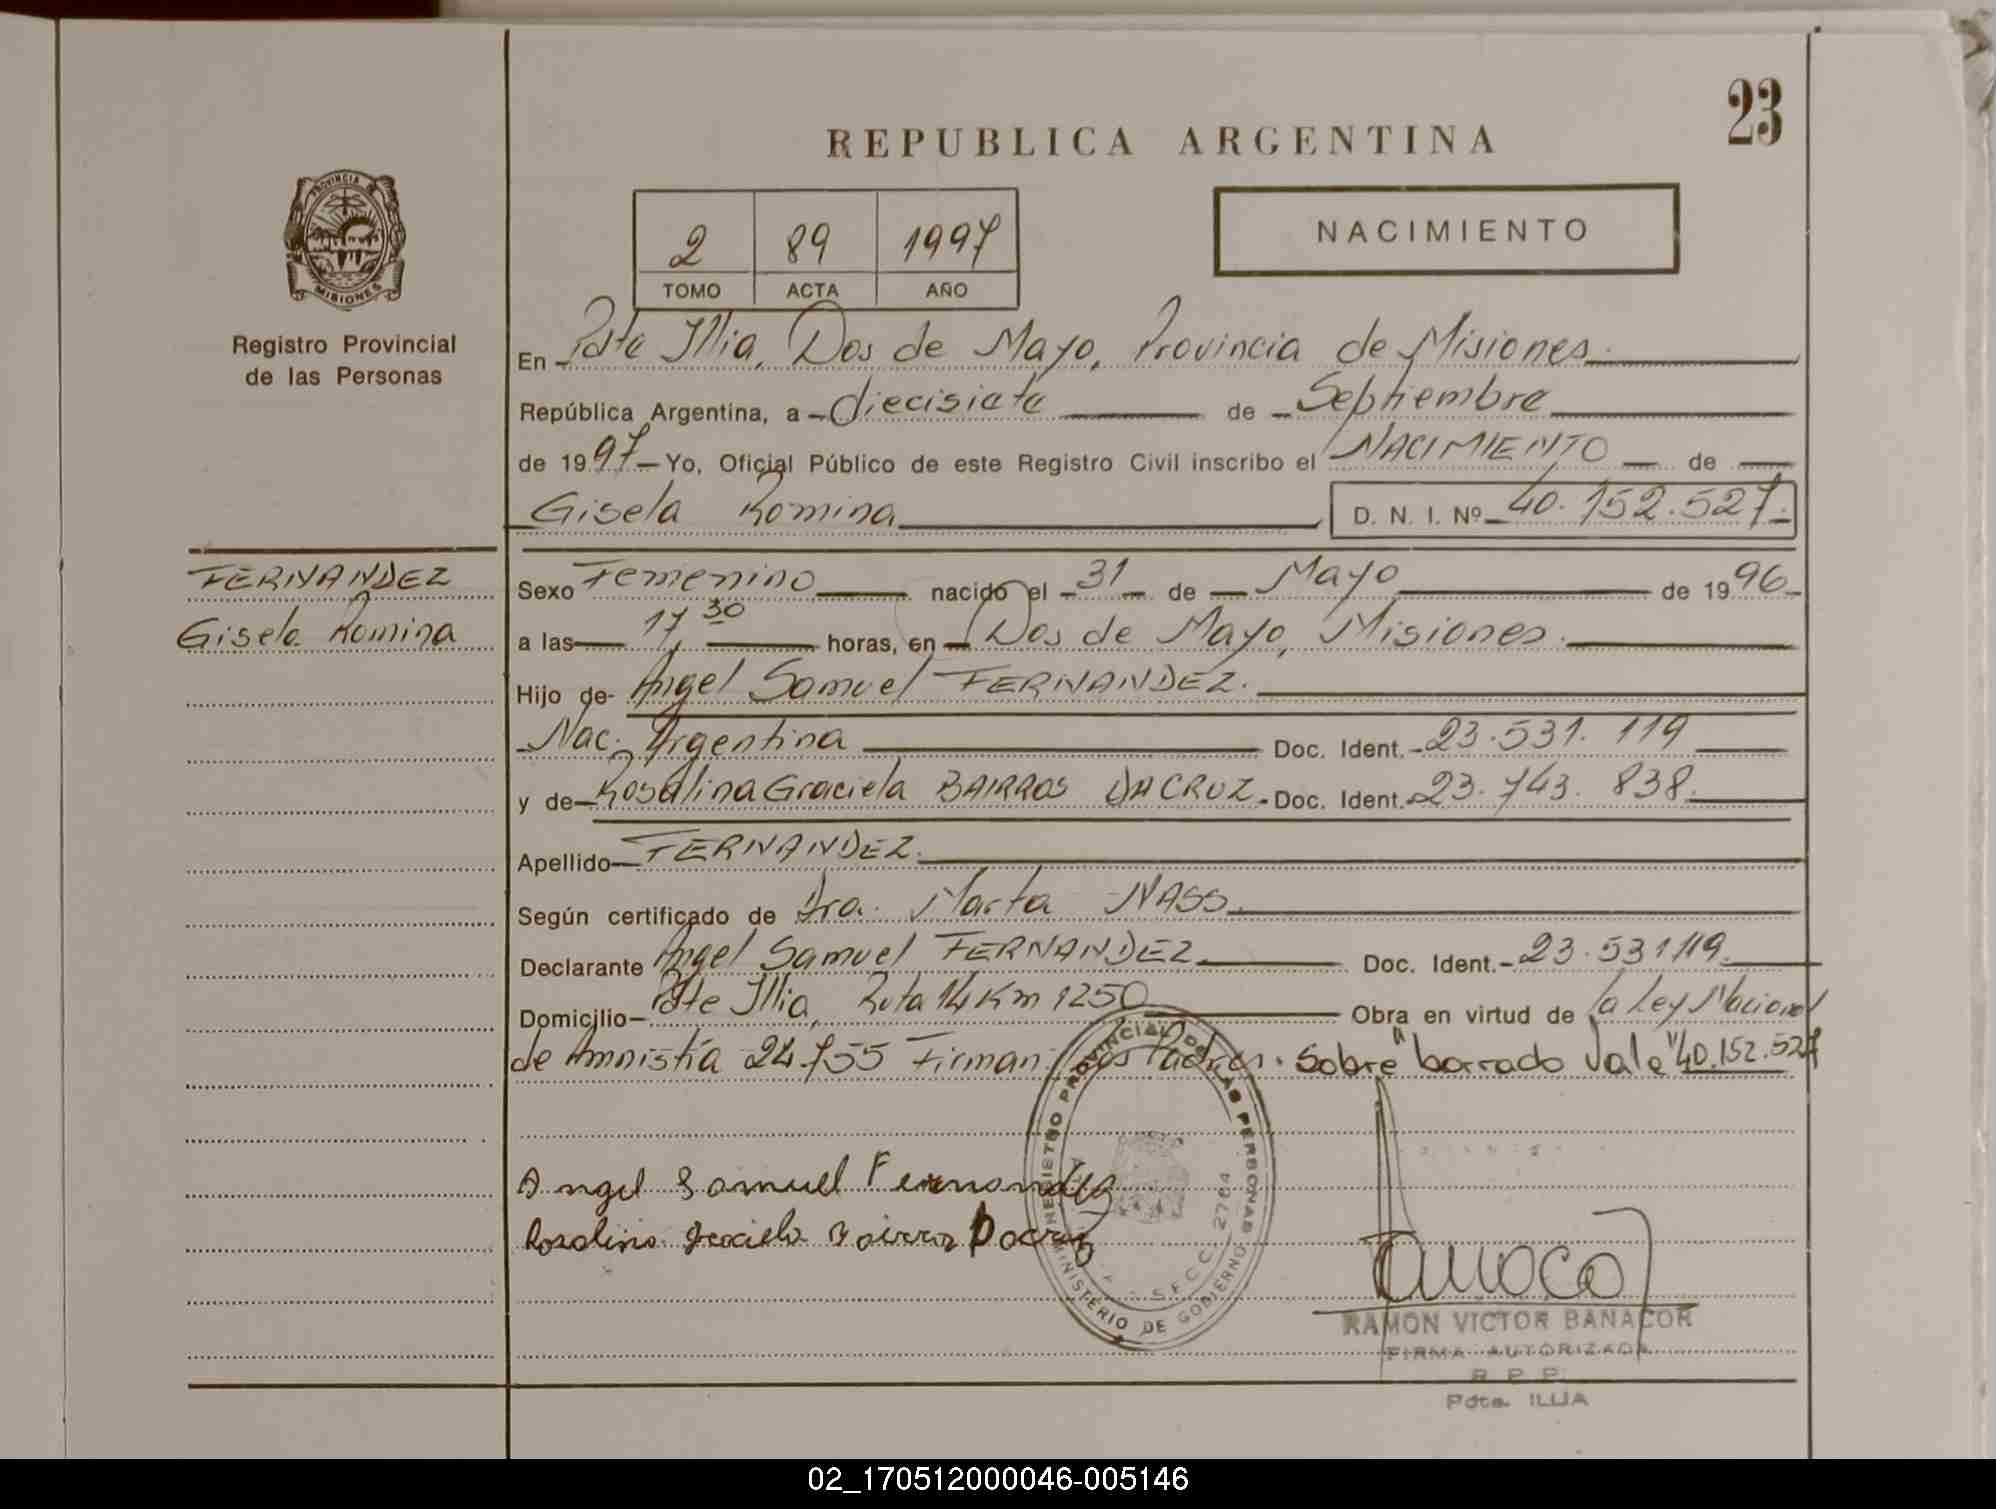 23
REPUBLICA ARGENTINA
2 89 1997
TOMO ACTA AÑO
NACIMIENTO
PROVINCIA DE
MISIONES
Registro Provincial
de las Personas
En Pdte Illia, Dos de Mayo, Provincia de Misiones.
República Argentina, a diecisiete de Septiembre
de 1997 Yo, Oficial Público de este Registro Civil inscribo el NACIMIENTO de
Gisela Romina D. N. I. Nº 40.152.527.
FERNANDEZ
Gisela Romina
Sexo Femenino nacido el 31 de Mayo de 1996
a las 17,30 horas, en Dos de Mayo, Misiones.
Hijo de Angel Samuel FERNANDEZ.
Nac. Argentina Doc. Ident. 23.531.119
y de Rosalina Graciela BAIRROS DACRUZ. Doc. Ident. 23.743.838.
Apellido FERNANDEZ.
Según certificado de Dra. Marta NASS.
Declarante Angel Samuel FERNANDEZ. Doc. Ident. 23.531119.
Domicilio Pdte Illia, Ruta 14 Km 1250 Obra en virtud de la Ley Nacional
de Amnistía 24.755 Firman: los Padres. Sobre "borrado Vale "40.152.527
Angel Samuel Fernandez
Rosalina Graciela Bairros Dacruz
REGISTRO PROVINCIAL DE LAS PERSONAS
MINISTERIO DE GOBIERNO
SECC. 2764
RAMON VICTOR BANACOR
FIRMA AUTORIZADA
R P P
Pdte. ILLIA
02_170512000046-005146